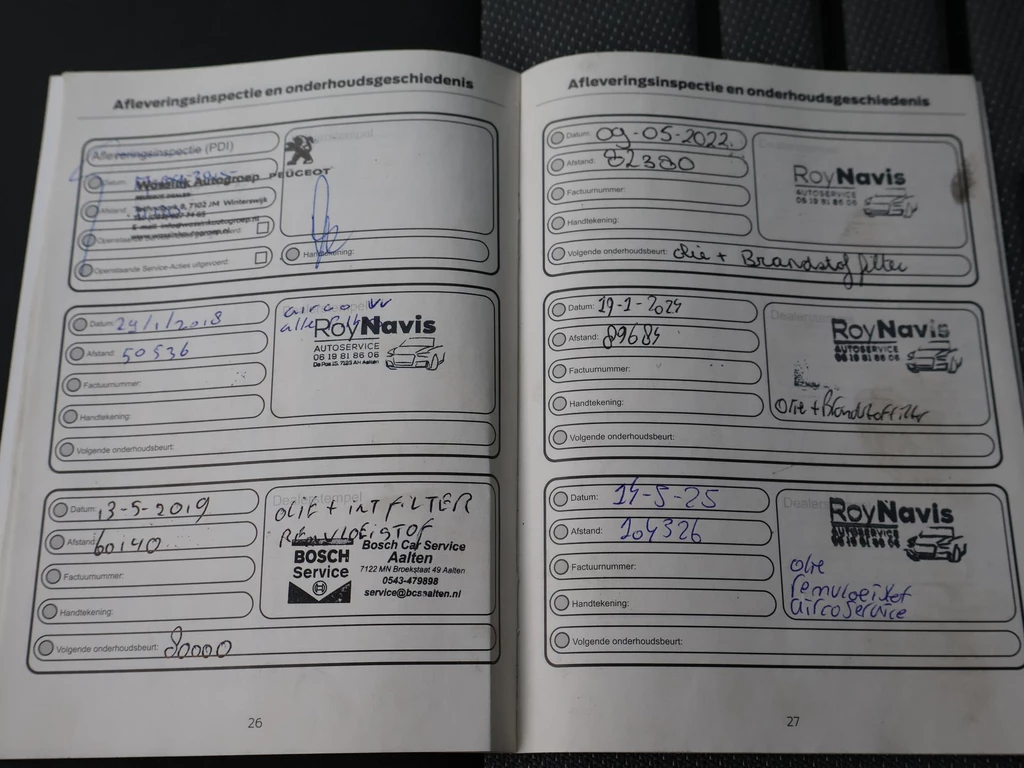 Afleveringsinspectie en onderhoudsgeschiedenis
Afleveringsinspectie (PDI)
Datum:
Afstand:
Openstaande Service-Acties uitgevoerd:
Autogroep
7102 JM Winterswijk
PEUGEOT
Handtekening:
Datum: 24/1/2018
Afstand: 50536
Factuurnummer:
Handtekening:
Volgende onderhoudsbeurt:
airco
RoyNavis
AUTOSERVICE
06 19 81 86 06
Datum: 13-5-2019
Afstand: 60140
Factuurnummer:
Handtekening:
Volgende onderhoudsbeurt: 80000
Dealerstempel
OLIE + INT FILTER
REMVLOEISTOF
BOSCH
Service
Bosch Car Service
Aalten
7122 MN Broekstaat 49 Aalten
0543-479898
service@bcsaalten.nl
26
Afleveringsinspectie en onderhoudsgeschiedenis
Datum: 09-05-2022.
Afstand: 82380
Factuurnummer:
Handtekening:
Volgende onderhoudsbeurt: olie + Brandstoffilter
RoyNavis
AUTOSERVICE
06 19 81 86 06
Datum: 19-1-2024
Afstand: 89684
Factuurnummer:
Handtekening:
Volgende onderhoudsbeurt:
RoyNavis
AUTOSERVICE
06 19 81 86 06
Olie + Brandstoffilter
Datum: 14-5-25
Afstand: 104326
Factuurnummer:
Handtekening:
Volgende onderhoudsbeurt:
RoyNavis
AUTOSERVICE
06 19 81 86 06
olie
remvloeistof
aircoservice
27